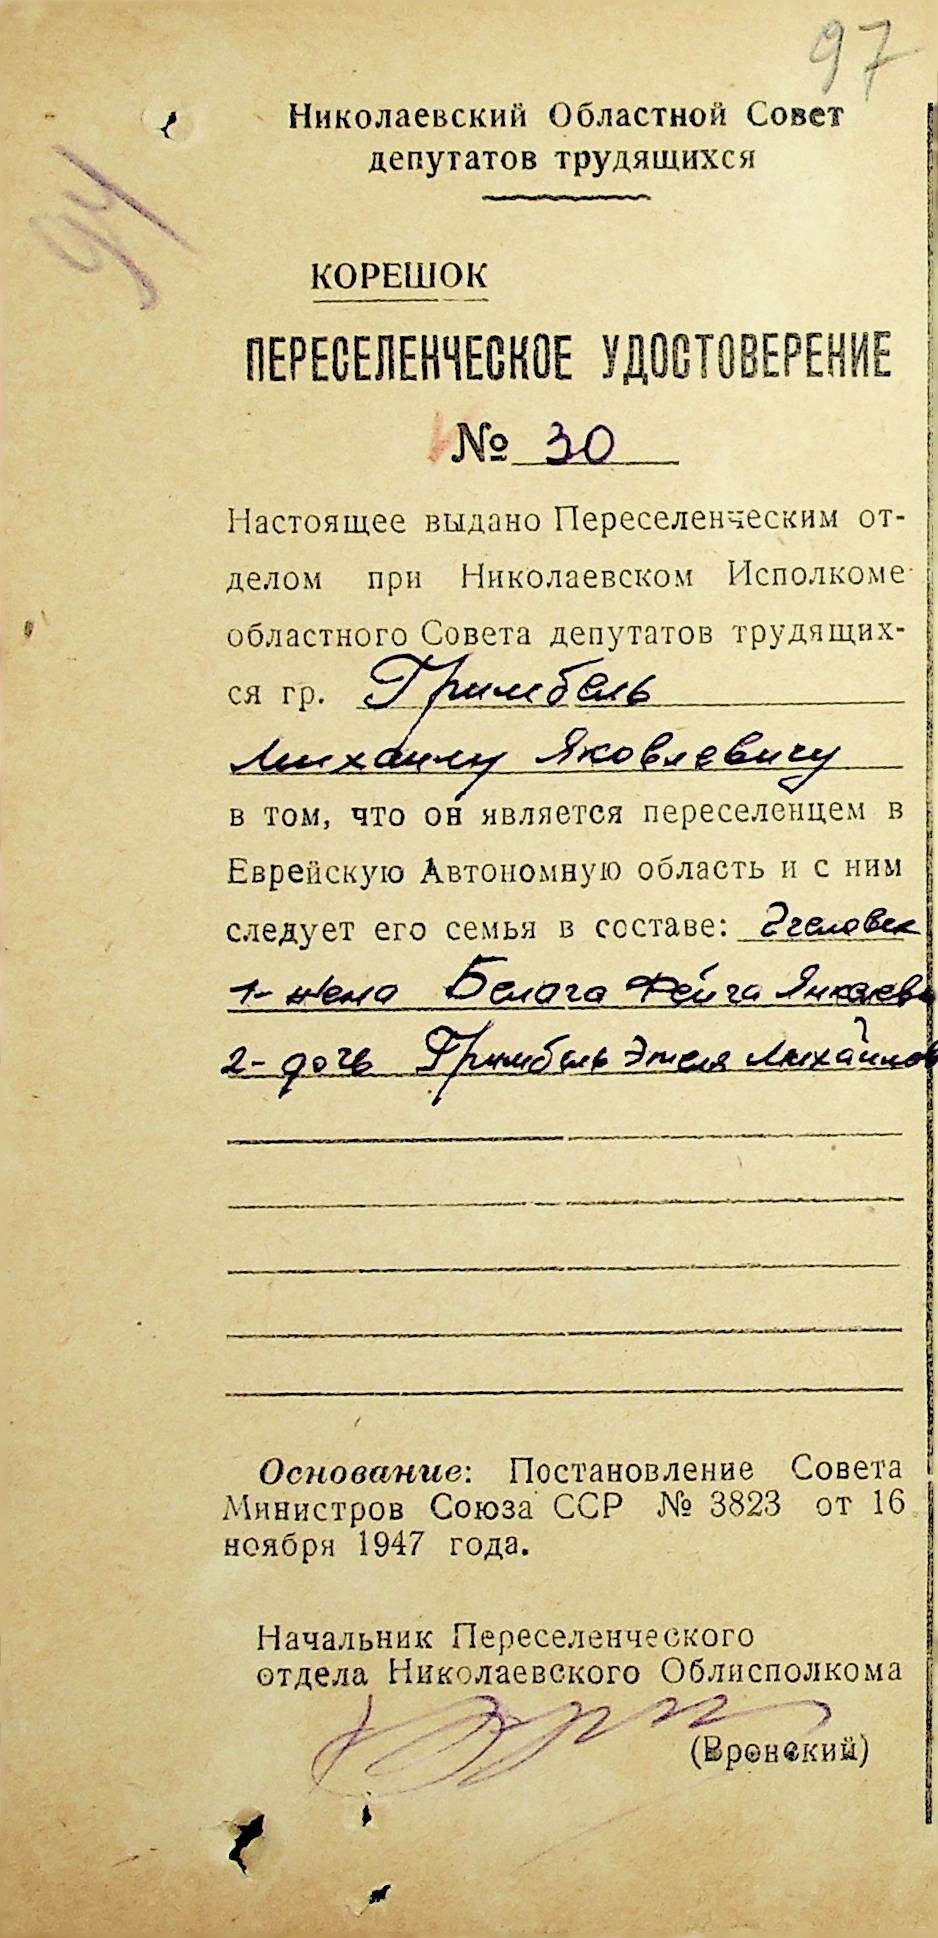 97
94
Николаевский Областной Совет
депутатов трудящихся
КОРЕШОК
ПЕРЕСЕЛЕНЧЕСКОЕ УДОСТОВЕРЕНИЕ
№ 30
Настоящее выдано Переселенческим от-
делом при Николаевском Исполкоме
областного Совета депутатов трудящих-
ся гр. Гримбель
Михаилу Яковлевичу
в том, что он является переселенцем в
Еврейскую Автономную область и с ним
следует его семья в составе: 2 человек
1- жена Белага Фейга Янкелев
2- дочь Гримбель Этля Михайлов
Основание: Постановление Совета
Министров Союза ССР № 3823 от 16
ноября 1947 года.
Начальник Переселенческого
отдела Николаевского Облисполкома
(Вронский)